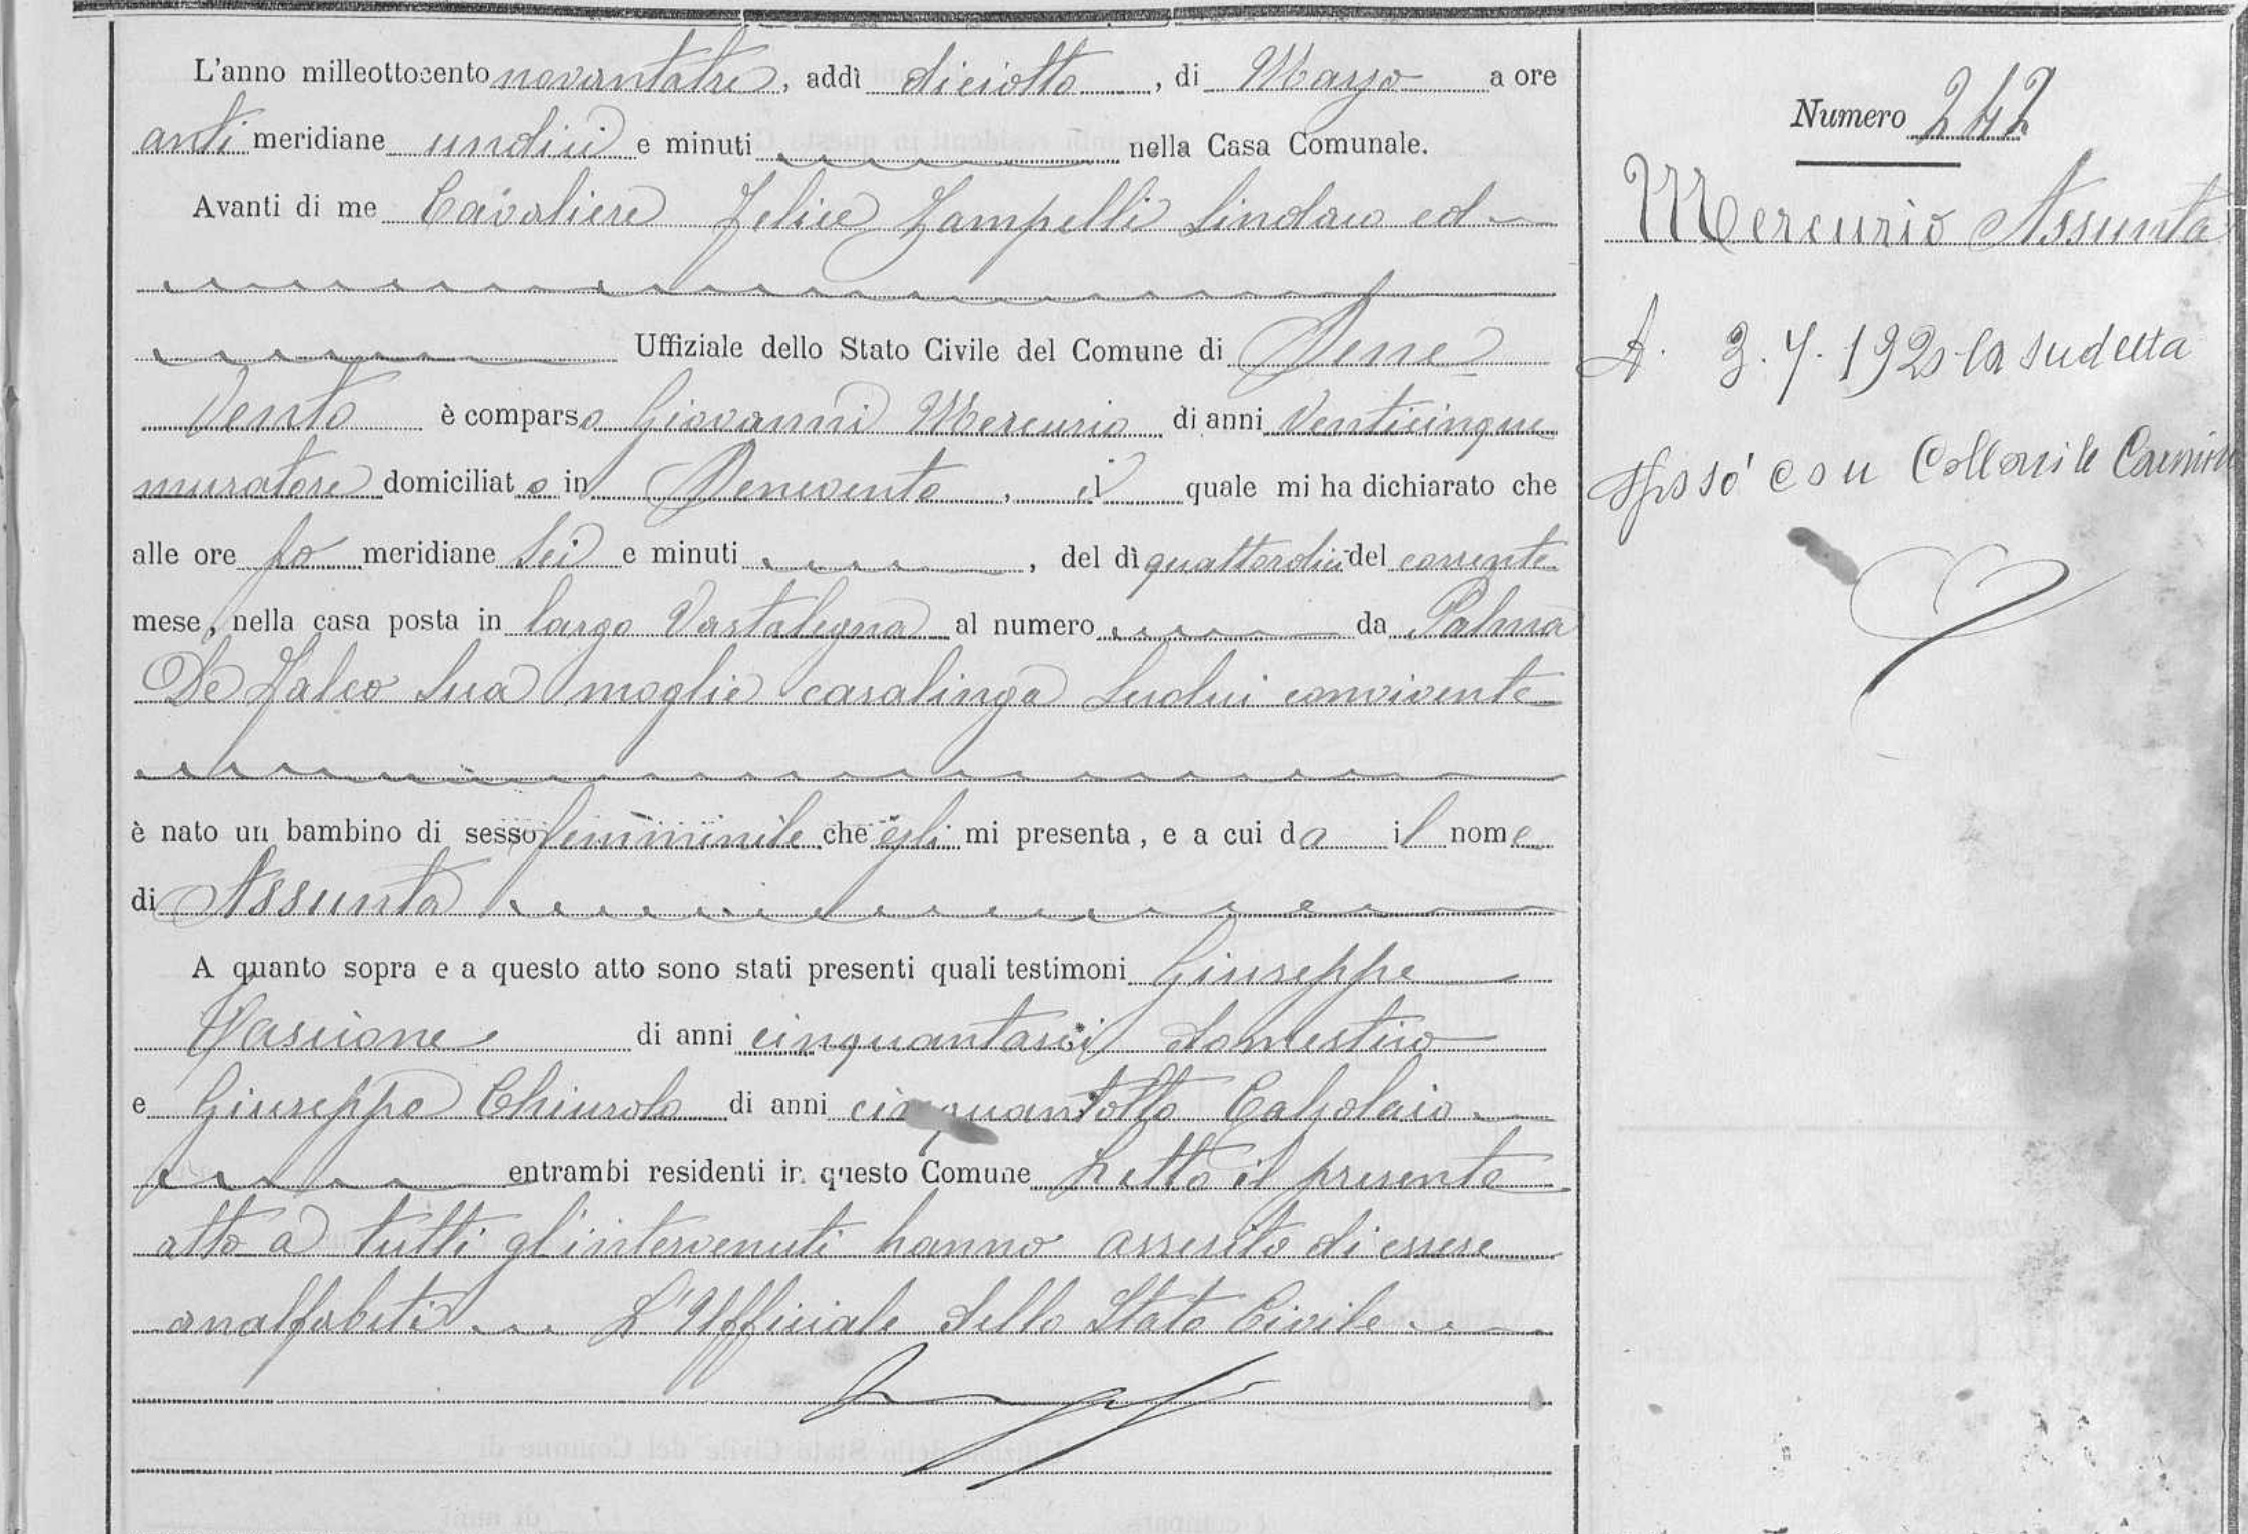 L'anno milleottocento novantatre, addì diciotto, di Marzo a ore
anti meridiane undici e minuti nella Casa Comunale.
Avanti di me Cavaliere Felice Zampelli Sindaco ed
Uffiziale dello Stato Civile del Comune di Bene
vento è comparso Giovanni Mercurio di anni venticinque
muratore domiciliato in Benevento, il quale mi ha dichiarato che
alle ore po meridiane sei e minuti , del dì quattordici del corrente
mese, nella casa posta in largo Vastalegna al numero da Palma
De Falco sua moglie casalinga seco lui convivente
è nato un bambino di sesso femminile che egli mi presenta, e a cui da il nome
di Assunta
A quanto sopra e a questo atto sono stati presenti quali testimoni Giuseppe
di anni cinquantasei domestico
e Giuseppe Chiusolo di anni cinquantotto Calzolaio
entrambi residenti in questo Comune Letto il presente
atto a tutti gl'intervenuti hanno asserito di essere
analfabeti L'Ufficiale dello Stato Civile
Numero 242
Mercurio Assunta
A. 3.7.1920 la sudetta
sposò con Collarile